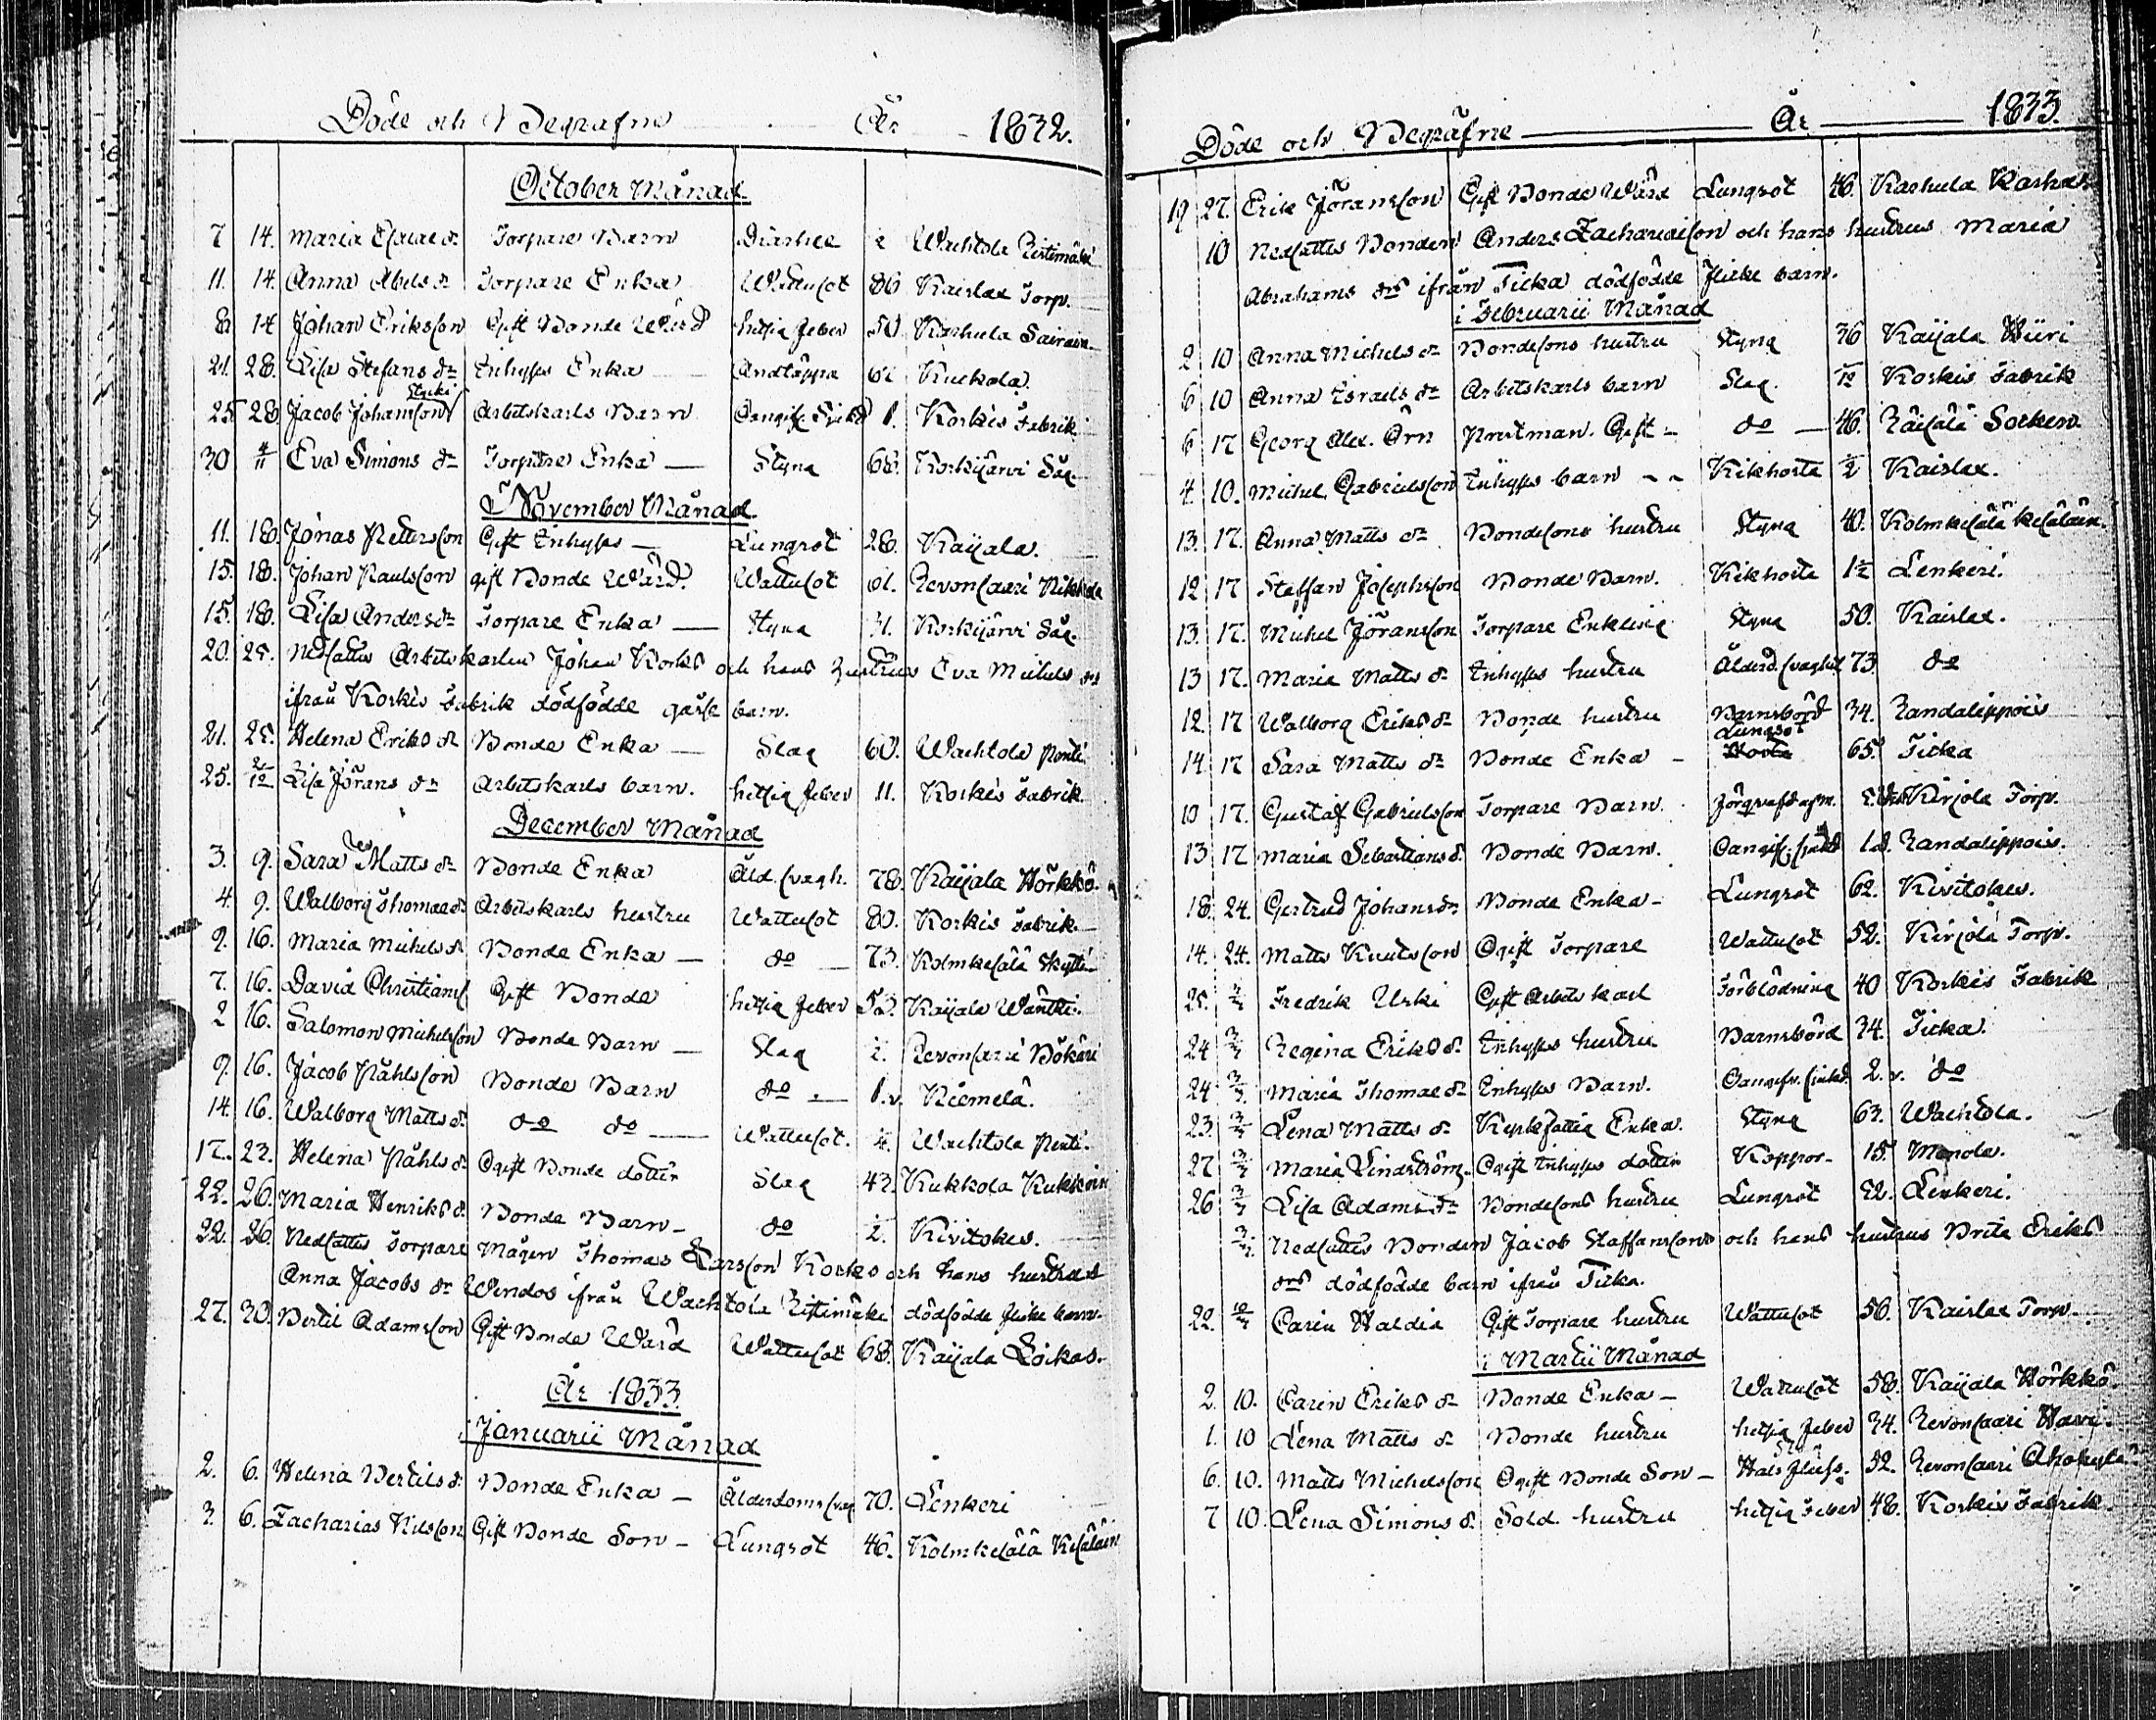 Döde och Begrafne År 1832.
October Månad.
7 14. Maria Torpare Barn Diarhee Wachtola Ristimäki
11. 14. Anna Abels dr Torpare Enka Wattusot 86 Kaislax Torp.
8 14 Johan Eriksson Gift Bonde Wärd hettig feber 50. Karhula
21. 28. Lisa Stefans dr Inhyses Enka Andtäppa Kuckola.
25 28 Jacob Johansson Arbetskarls Barn Oangif. Korkis Fabrik
30 4/11 Eva Simons dr Torpare Enka Styng 68. Korkijärvi Såg.
I November Månad.
11. 18. Jonas Pettersson Gift Inhyses Lungsot 28. Kaijala.
15. 18. Johan Paulsson gift Bonde Wärd. Wattusot 61. Revonsaari Pikkola
15. 18. Lisa Anders dr Torpare Enka Styng 31. Korkijärvi Såg.
20. 25. Nedsattes Arbetskarlen Johan Korko och hans hustrus Eva Michels drs
ifrån Korkis Fabrik dödfödde gåsse barn.
21. 25. Helena Eriks dr Bonde Enka Slag 60. Wachtola Pentti.
25. 2/12 Lisa Jörans dr Arbetskarls barn. hettig feber 11. Korkis Fabrik.
December Månad
3. 9. Sara Matts dr Bonde Enka Åld. svagh. 78. Kaijala Hörkkö.
4 9. Walborg Thomae dr Arbetskarls hustru Wattusot 80. Korkis Fabrik.
9. 16. Maria Michels dr Bonde Enka do 73. Kolmkesälä Skyttä
7. 16. David Christians Gift Bonde hettig feber 53. Kaijala Wäntti.
2 16. Salomon Michelsson Bonde Barn Slag Revonsaari Pökäri
9. 16. Jacob Påhlsson Bonde Barn do 1.v. Niemelä.
14. 16. Walborg Matts dr do do Wattusot. Wachtola Pentti.
17. 23. Helena Påhls dr Ogift Bonde dotter Slag 43. Kukkola Kukkoin
22. 26. Maria Henriks dr Bonde Barn do Kivitokes.
22. 26. Nedsattes Torpare Mågen Thomas Larsson Korko och hans hustrus
Anna Jacobs dr Wendos ifrån Wachtola Ristimäki dödfödde flicke barn.
27. 30. Bertil Adamsson Gift Bonde Wärd Wattusot 68. Kaijala Loikas.
År 1833.
i Januarii Månad
2. 6. Helena Bertils dr Bonde Enka Ålderdoms svag 70. Lenkeri
3. 6. Zacharias Nilsson Gift Bonde Son Lungsot 46. Kolmkesälä Kesäläin
Döde och Begrafne År 1833.
19 27. Erik Jöransson Gift Bonde Wärd Lungsot 46. Karhula
10 Nedsattes Bonden Anders Zachariaisson och hans hustrus Maria
Abrahams drs ifrån Ticka dödfödde flicke barn.
i Februarii Månad
2 10 Anna Michels dr Bondesons hustru Styng 36 Kaijala Wiiri
6 10 Anna Israels dr Arbetskarls barn Slag. Korkis Fabrik
6 17 Georg Alex. Örn Prestman. Gift do 46. Räisälä Socken
4. 10. Michel Gabrielsson Inhyses barn Kikhosta 1/2 Kaislax.
13. 17. Anna Matts dr Bondesons hustru Styng 40. Kolmkesälä Kesäläin.
12 17 Staffan Josephsson Bonde Barn. Kikhosta 1 1/2 Lenkeri.
13. 17. Michel Jöransson Torpare Enkling Styng 50. Kaislax.
13 17. Maria Matts dr Inhyses hustru Ålderd. svaghet 73. do
12. 17 Walborg Eriks dr Bonde hustru Barnsbörd 34. Randalippois
14. 17 Sara Matts dr Bonde Enka Lungsot 65. Ticka
10 17. Gustaf Gabrielsson Torpare Barn. Kirjola Torp.
13 17 Maria Sebastians dr Bonde Barn. Oangif. sjukd. Randalippois.
18 24. Gertrud Johans dr Bonde Enka Lungsot 62. Kivitokes.
14. 24. Matts Knutsson Ogift Torpare Wattusot 52. Kirjola Torp.
25. 3/3 Fredrik Urki Gift Arbetskarl Förblödning 40 Korkis Fabrik
24 3/3 Regina Eriks dr Inhyses hustru Barnsbörd 34. Ticka.
24 3/3. Maria Thomae dr Inhyses Barn. Oangifv. sjukd. 2.v. do
23. 3/3 Lena Matts dr Kyrkfattig Enka. Styng 63. Wachtola.
27 3/3 Maria Lindström Ogift Inhyses dotter Koppor 15. Manola.
26 3/3 Lisa Adams dr Bondesons hustru Lungsot 52. Lenkeri.
3/3. Nedsattes Bonden Jacob Staffanssons och hans hustrus Brita Eriks
drs dödfödde barn ifrån Ticka.
22. 10/3 Carin Haldia Gift Torpare hustru Wattusot 56. Kaislax Torp.
i Martii Månad
2. 10. Carin Eriks dr Bonde Enka Wattusot 58. Kaijala Hörkkö.
1. 10 Lena Matts dr Bonde hustru hettig feber 34. Revonsaari
6. 10. Matts Michelsson Ogift Bonde Son 52. Revonsaari Ahokylä
7 10. Lena Simons dr Sold. hustru hettig feber 48. Korkis Fabrik.